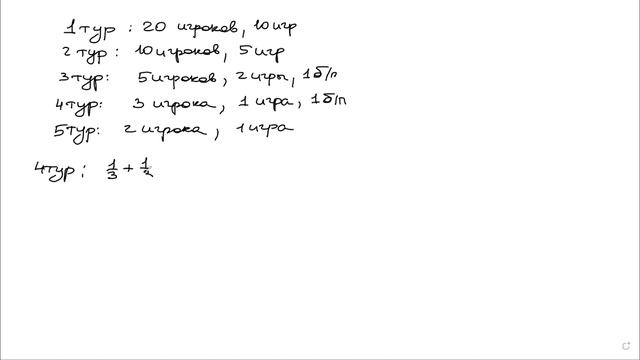 1 тур : 20 игроков, 10 игр
2 тур : 10 игроков, 5 игр
3 тур: 5 игроков, 2 игры, 1 б/п
4 тур: 3 игрока, 1 игра, 1 б/п
5 тур: 2 игрока, 1 игра
4 тур: 1/3 + 1/2